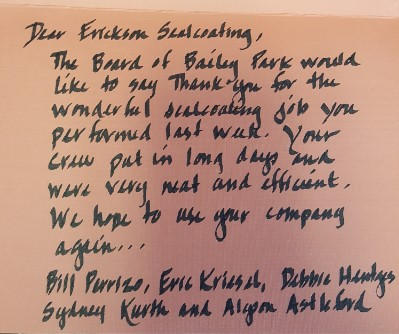 Dear Erickson Sealcoating,
The Board of Bailey Park would
like to say Thank-you for the
wonderful sealcoating job you
performed last week. Your
crew put in long days and
were very neat and efficient.
We hope to use your company
again...
Bill Perrizo, Eric Kriesel, Debbie
Sydney Kurth and Alyson Astleford